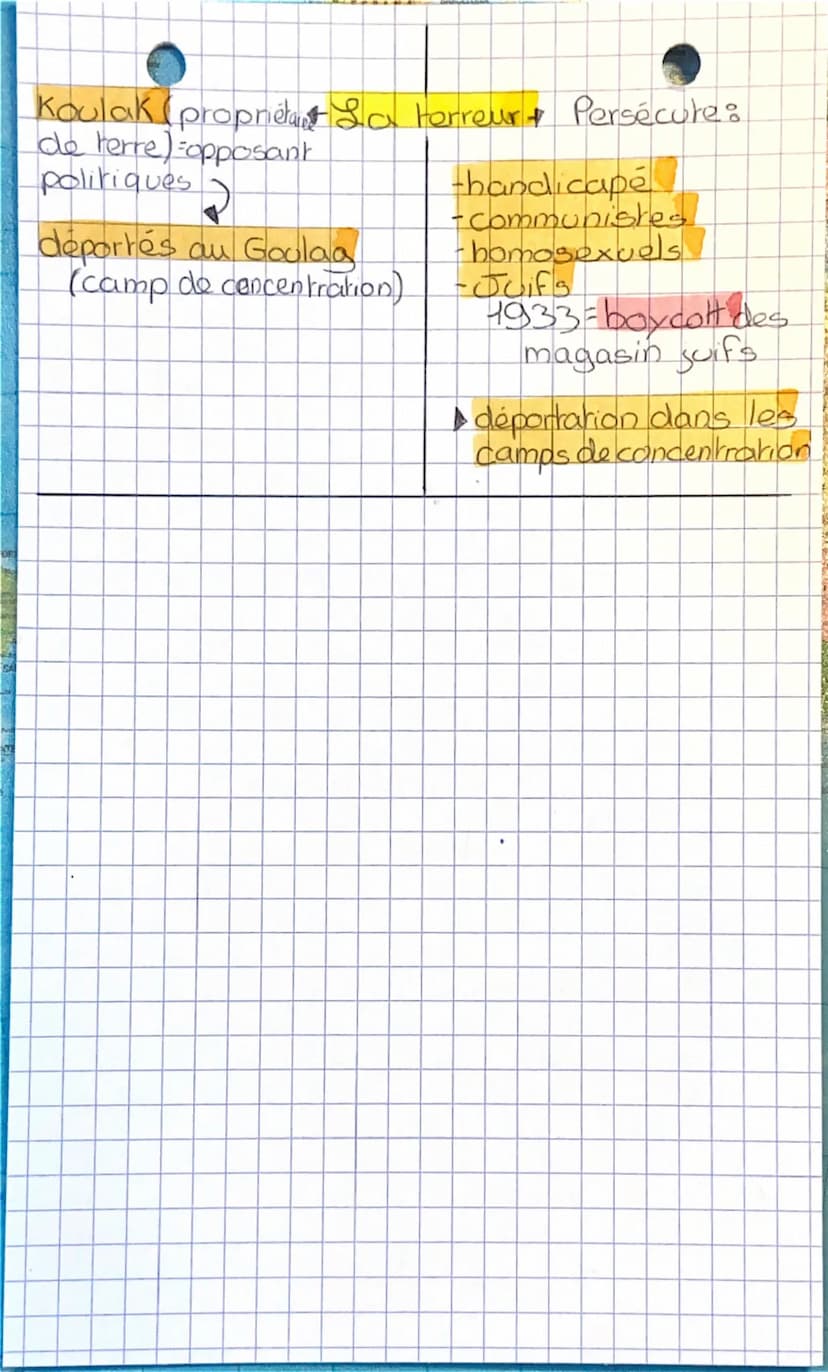 La terreur
Koulak (propriétaire
de terre) = opposant
politiques
déportés au Goulag
(camp de concentration)
Persécute :
- handicapé
- communistes
- homosexuels
- Juifs
1933 = boycott des
magasin juifs
déportation dans les
camps de concentration